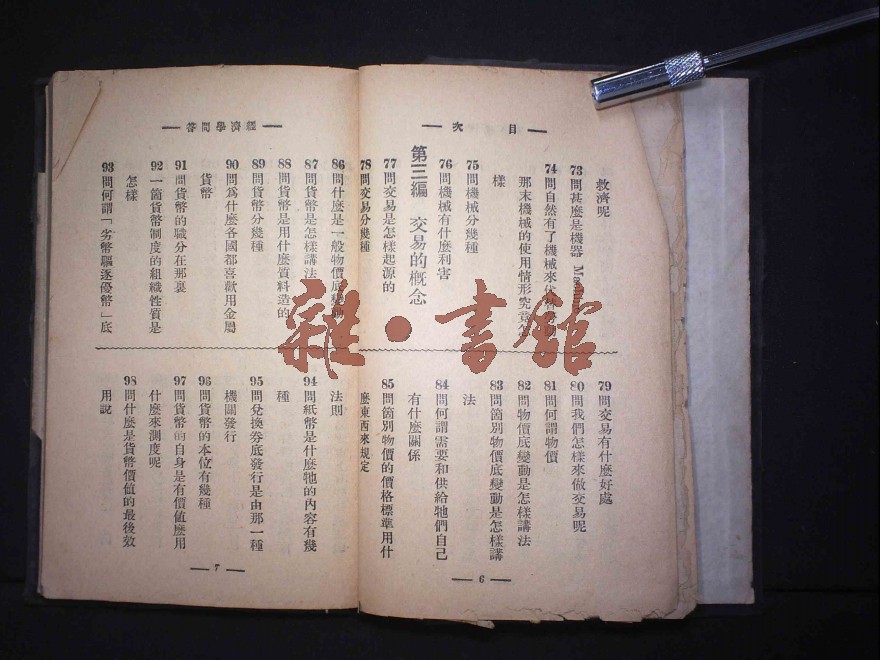 目次
救濟呢
73問甚麼是機器
74問自然有了機械來
那末機械的使用情形究竟怎
樣
75問機械分幾種
76問機械有什麼利害
第三編 交易的概念
77問交易是怎樣起源的
78問交易分幾種
79問交易有什麼好處
80問我們怎樣來做交易呢
81問何謂物價
82問物價底變動是怎樣講法
83問箇別物價底變動是怎樣講
法
84問何謂需要和供給牠們自己
有什麼關係
85問箇別物價的價格標準用什
麼東西來規定
6
經濟學問答
86問什麼是一般物價底變動
87問貨幣是怎樣講法
88問貨幣是用什麼質料造的
89問貨幣分幾種
90問爲什麼各國都喜歡用金屬
貨幣
91問貨幣的職分在那裏
92一箇貨幣制度的組織性質是
怎樣
93問何謂「劣幣驅逐優幣」底
法則
94問紙幣是什麼牠的內容有幾
種
95問兌換券底發行是由那一種
機關發行
96問貨幣的本位有幾種
97問貨幣的自身是有價值麼用
什麼來測度呢
98問什麼是貨幣價值的最後效
用說
7
雜·書館